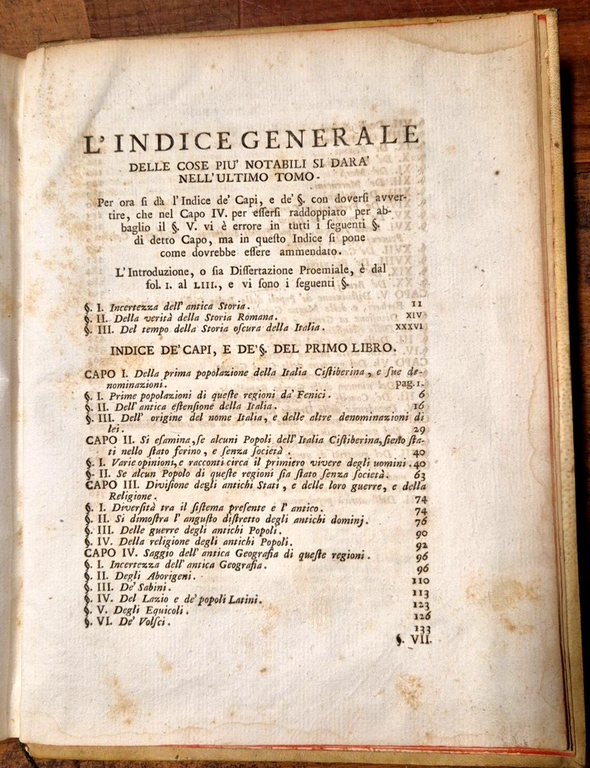 L'INDICE GENERALE
DELLE COSE PIU' NOTABILI SI DARA'
NELL'ULTIMO TOMO.
Per ora ſi dà l'Indice de' Capi, e de' §. con doverſi avver-
tire, che nel Capo IV. per eſſerſi raddoppiato per ab-
baglio il §. V. vi è errore in tutti i ſeguenti §.
di detto Capo, ma in queſto Indice ſi pone
come dovrebbe eſſere ammendato.
L'Introduzione, o ſia Diſſertazione Proemiale, è dal
fol. I. al LIII., e vi ſono i ſeguenti §.
§. I. Incertezza dell'antica Storia. II
§. II. Della verità della Storia Romana. XIV
§. III. Del tempo della Storia oſcura della Italia. XXXVI
INDICE DE' CAPI, E DE' §. DEL PRIMO LIBRO.
CAPO I. Della prima popolazione della Italia Ciſtiberina, e ſue de-
nominazioni. pag. 1.
§. I. Prime popolazioni di queſte regioni da' Fenici. 6
§. II. Dell'antica eſtenſione della Italia. 16
§. III. Dell' origine del nome Italia, e delle altre denominazioni di
lei. 29
CAPO II. Si eſamina, ſe alcuni Popoli dell'Italia Ciſtiberina, ſieno ſta-
ti nello ſtato ferino, e ſenza ſocietà. 40
§. I. Varie opinioni, e racconti circa il primiero vivere degli uomini. 40
§. II. Se alcun Popolo di queſte regioni ſia ſtato ſenza ſocietà. 63
CAPO III. Diviſione degli antichi Stati, e delle loro guerre, e della
Religione. 74
§. I. Diverſità tra il ſiſtema preſente e l' antico. 74
§. II. Si dimoſtra l' anguſto diſtretto degli antichi dominj. 76
§. III. Delle guerre degli antichi Popoli. 90
§. IV. Della religione degli antichi Popoli. 92
CAPO IV. Saggio dell'antica Geografia di queſte regioni. 96
§. I. Incertezza dell'antica Geografia. 96
§. II. Degli Aborigeni. 110
§. III. De' Sabini. 113
§. IV. Del Lazio e de' popoli Latini. 123
§. V. Degli Equicoli. 126
§. VI. De' Volſci. 133
§. VII.